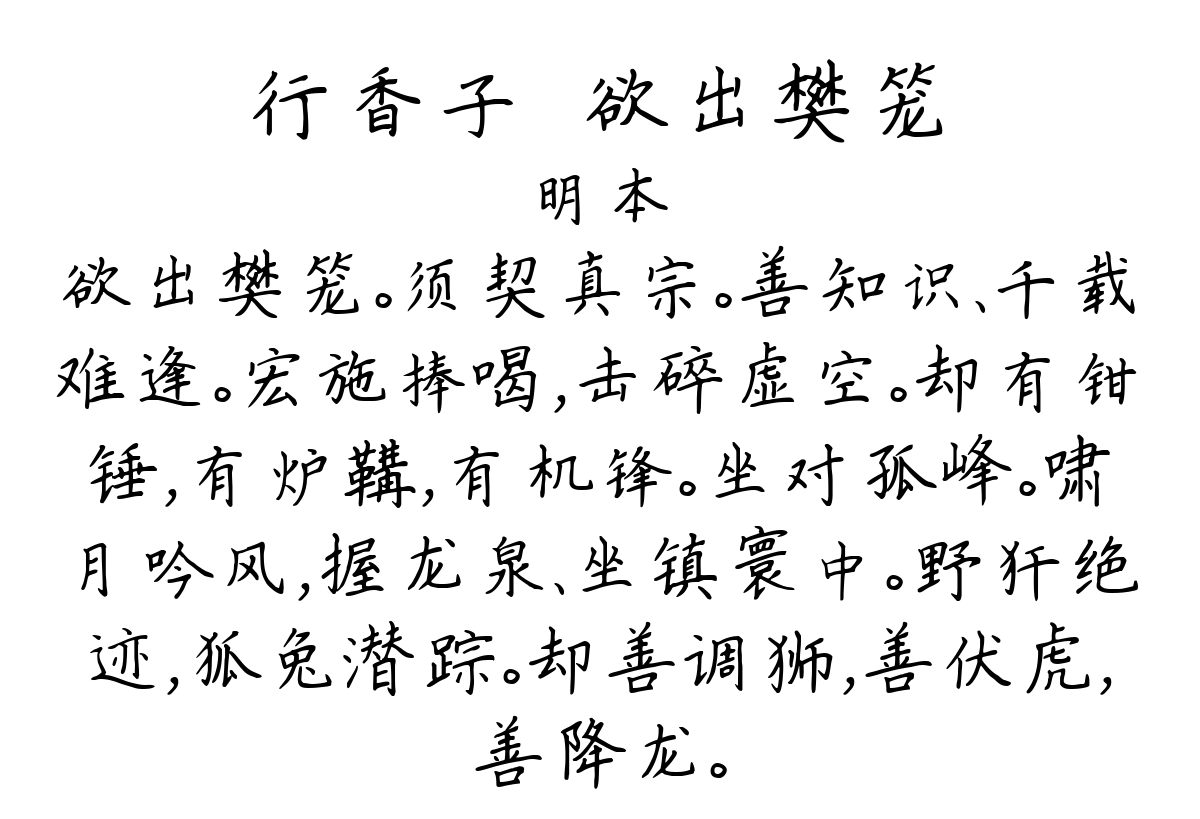 行香子 欲出樊笼
明本
欲出樊笼。须契真宗。善知识、千载
难逢。宏施捧喝,击碎虚空。却有钳
锤,有炉鞲,有机锋。坐对孤峰。啸
月吟风,握龙泉、坐镇寰中。野犴绝
迹,狐兔潜踪。却善调狮,善伏虎,
善降龙。